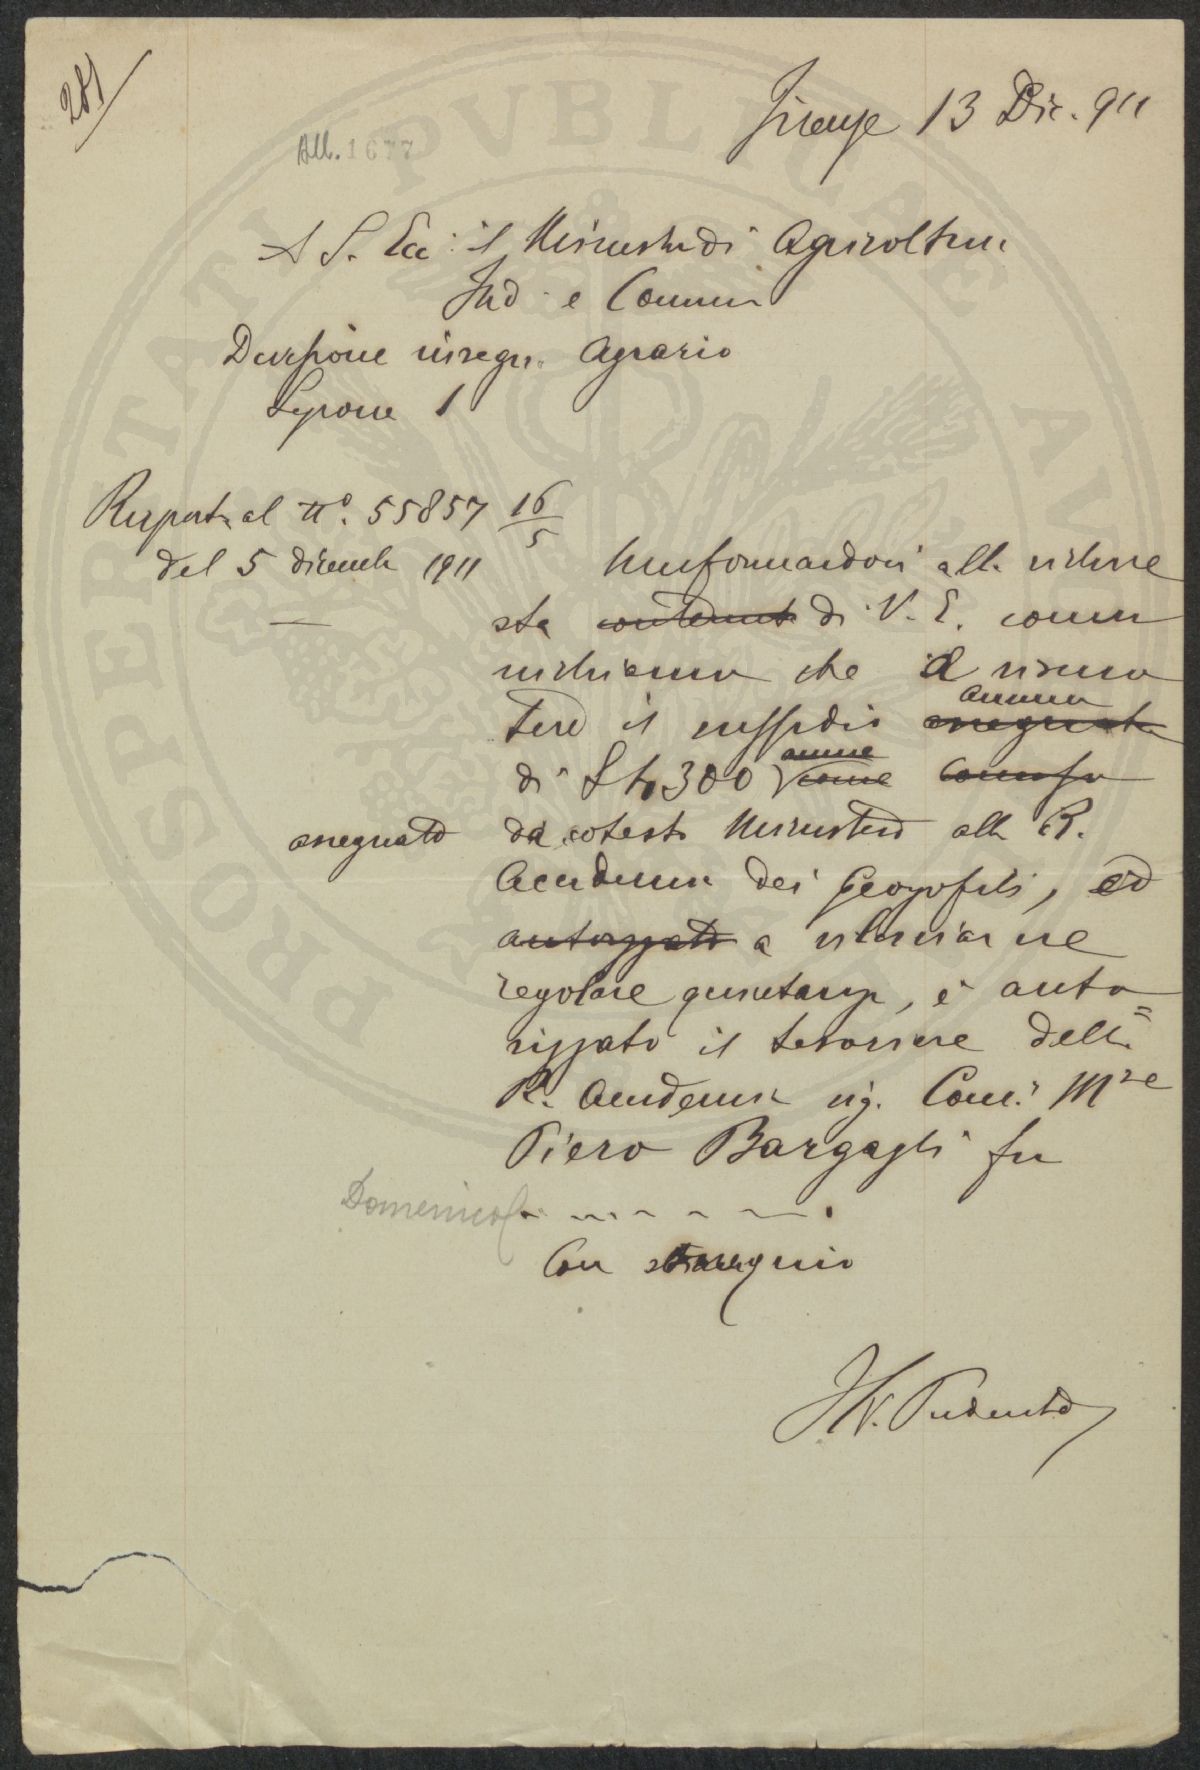 281
All. 1677
Firenze 13 Dic. 911
A S. Ecc. il Ministro di Agricoltura
Ind. e Comm.
Divisione insegn. Agrario
Sezione 1
Risposta al n°. 55857 16/5
del 5 dicembre 1911
Uniformandoci alla richie
sta contenuta di V. E. comu
nichiamo che a riscuo
annuo
tere il sussidio assegnato
annue
di L. 300 come
assegnato da cotesto Ministero alla R.
Accademia dei Georgofili, ed
autorizzato a rilasciarne
regolare quietanza, è auto
rizzato il tesoriere della
R. Accademia sig. Cav. Mse
Piero Bargagli fu
Domenico
Con ossequio
Il V. Presidente
PROSPERITATI PVBLICAE AVGENDAE